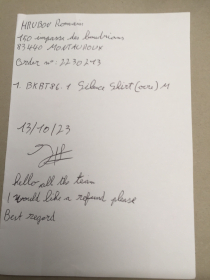 HRUBOV Romain
180 impasse des laudrians
83440 MONTAUROUX
Order n°: 2230213
1. BKBT86 1 Silence Skirt (ours) M
13/10/23
hello all the team
I would like a refund please
Best regard